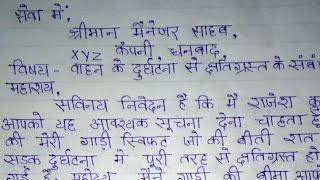 सेवा में,
श्रीमान मैनेजर साहब,
xyz कंपनी, धनबाद,
विषय - वाहन के दुर्घटना से क्षतिग्रस्त के संबं
महाशय,
सविनय निवेदन है कि मैं राजेश कु
आपको यह आवश्यक सूचना देना चाहता हूँ
की मेरी गाड़ी स्विफ्ट जो की बीती रात
सड़क दुर्घटना में पूरी तरह से क्षतिग्रस्त हो
गई है, महोदय मैंने गाड़ी की बीमा आप